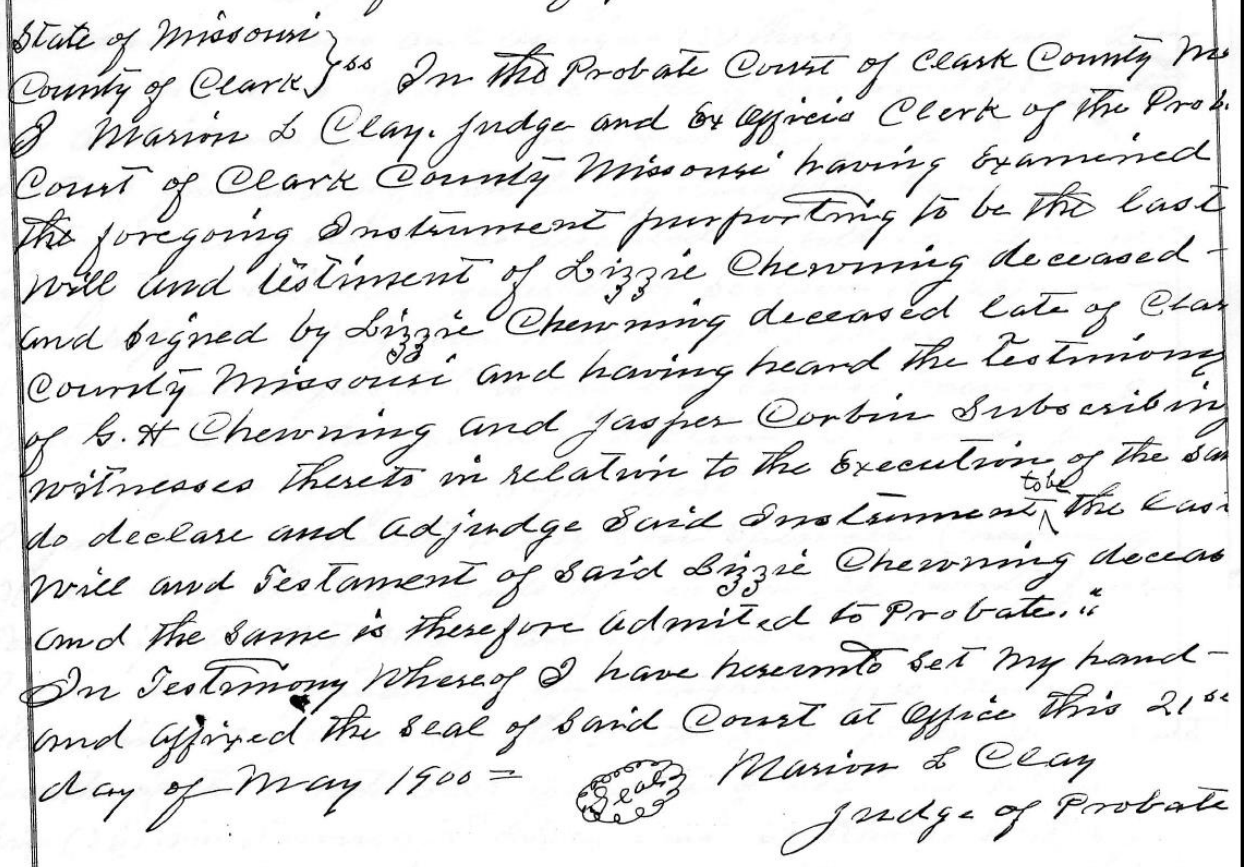 State of Missouri
County of Clark } ss In the Probate Court of Clark County Mo
I Marion L Clay. Judge and Ex Officio Clerk of the Prob.
Court of Clark County Missouri having Examined
the foregoing Instrument purporting to be the last
Will and testiment of Lizzie Chewning deceased -
and signed by Lizzie Chewning deceased late of Clar
County Missouri and having heard the testimony
of G. H Chewning and Jasper Corbin Subscribing
witnesses thereto in relation to the Execution of the sam
do declare and adjudge Said Instrument to be the last
Will and Testament of Said Lizzie Chewning deceas
and the same is therefore admited to Probate."
In Testimony Whereof I have hereunto set my hand -
and affixed the Seal of Said Court at Office this 21st
day of May 1900 = Seal Marion L Clay
Judge of Probate